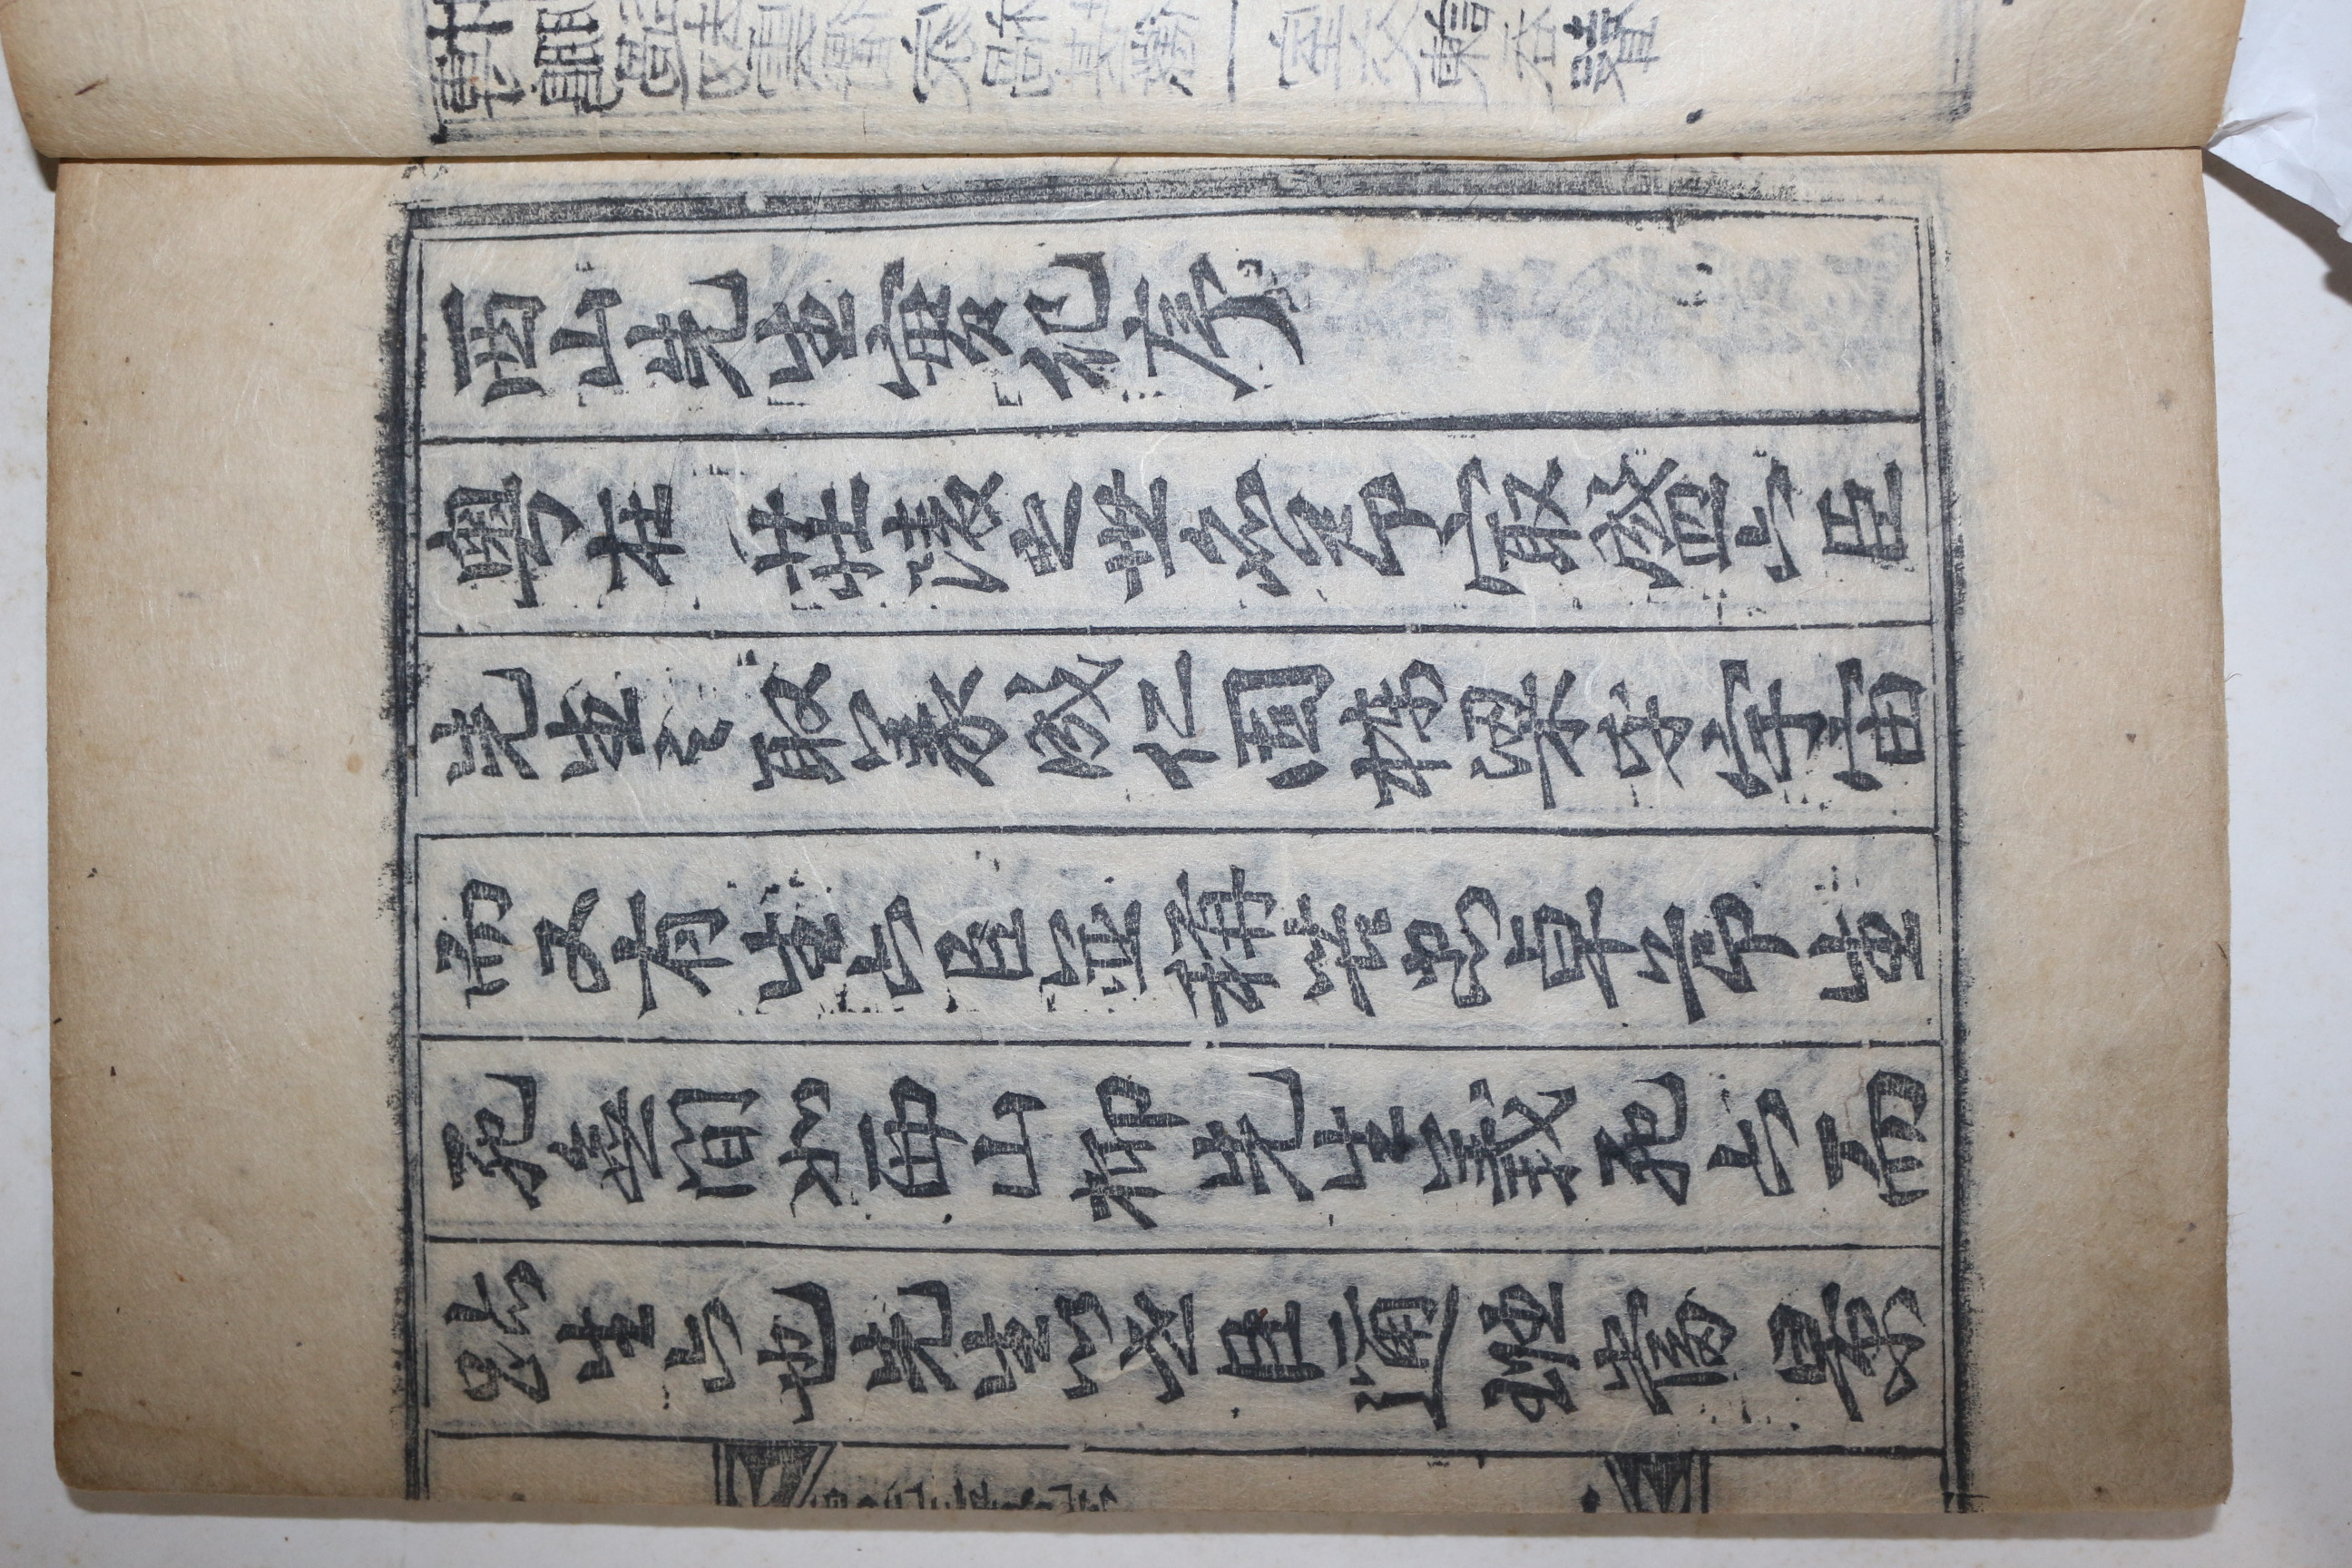 西山先生實紀序
粤在 莊陵之世名節㝡盛六臣
先生之取義成仁固棟梁乎宇宙
而又有生六臣並稱苦忠卓節生
死無間如西山柳先生義死六而
跡生六也先生以世臣邇班當景